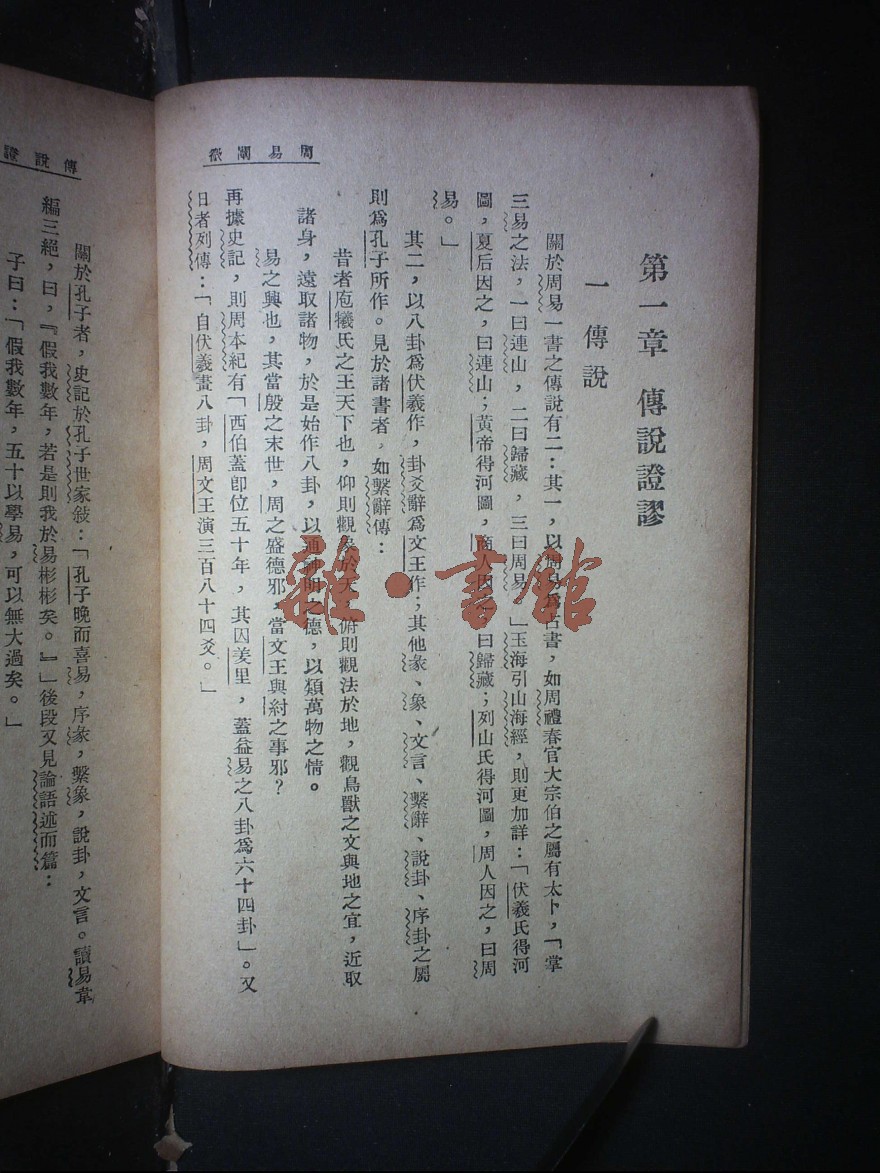 周易闡微
第一章 傳說證謬
一 傳說
關於周易一書之傳說有二：其一，以周易爲古書，如周禮春官大宗伯之屬有太卜，「掌
三易之法，一曰連山，二曰歸藏，三曰周易。」玉海引山海經，則更加詳：「伏羲氏得河
圖，夏后因之，曰連山；黃帝得河圖，商人因之，曰歸藏；列山氏得河圖，周人因之，曰周
易。」
其二，以八卦爲伏羲作，卦爻辭爲文王作；其他彖、象、文言、繫辭、說卦、序卦之屬
則爲孔子所作。見於諸書者，如繫辭傳：
昔者庖犧氏之王天下也，仰則觀象於天，俯則觀法於地，觀鳥獸之文與地之宜，近取
諸身，遠取諸物，於是始作八卦，以通神明之德，以類萬物之情。
易之興也，其當殷之末世，周之盛德邪，當文王與紂之事邪？
再據史記，則周本紀有「西伯蓋即位五十年，其囚羑里，蓋益易之八卦爲六十四卦」。又
日者列傳：「自伏羲畫八卦，周文王演三百八十四爻。」
傳說證
關於孔子者，史記於孔子世家敍：「孔子晚而喜易，序彖，繫象，說卦，文言。讀易韋
編三絕，曰，『假我數年，若是則我於易彬彬矣。』」後段又見論語述而篇：
子曰：「假我數年，五十以學易，可以無大過矣。」
雜·書館